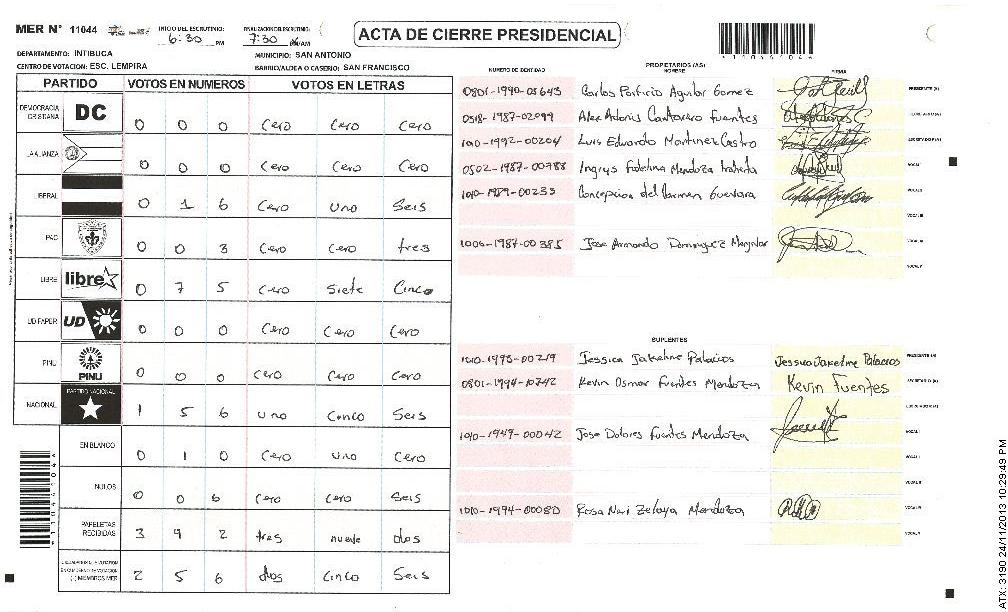 MER N° 11044
INICIO DEL ESCRUTINIO: 6:30 PM
FINALIZACION DEL ESCRUTINIO: 7:30 PM/AM
ACTA DE CIERRE PRESIDENCIAL
DEPARTAMENTO: INTIBUCA
MUNICIPIO: SAN ANTONIO
CENTRO DE VOTACION: ESC. LEMPIRA
BARRIO/ALDEA O CASERIO: SAN FRANCISCO
PARTIDO VOTOS EN NUMEROS VOTOS EN LETRAS
DEMOCRACIA CRISTIANA DC 0 0 0 Cero Cero Cero
LA ALIANZA 0 0 0 Cero Cero Cero
LIBERAL 0 1 6 Cero Uno Seis
PAC 0 0 3 Cero Cero tres
LIBRE libre 0 7 5 Cero Siete Cinco
UD FAPER UD 0 0 0 Cero Cero Cero
PINU PINU 0 0 0 Cero Cero Cero
NACIONAL PARTIDO NACIONAL 1 5 6 uno Cinco Seis
EN BLANCO 0 1 0 Cero uno Cero
NULOS 0 0 6 Cero Cero Seis
PAPELETAS RECIBIDAS 3 9 2 tres nueve dos
2 5 6 dos Cinco Seis
PROPIETARIOS (AS)
NUMERO DE IDENTIDAD NOMBRE FIRMA
0801-1990-05643 Carlos Porfirio Aguilar Gomez PRESIDENTE (A)
0518-1987-02099 Alex Antonio Cantarero Fuentes
1010-1992-00204 Luis Eduardo Martinez Castro SECRETARIO (A)
0502-1987-00788 Ingrys Fidelina Mendoza VOCAL I
1010-1989-00233 Concepcion del Carmen Guevara VOCAL II
VOCAL III
1006-1987-00385 Jose Armando Dominguez VOCAL IV
VOCAL V
SUPLENTES
1010-1993-00219 Jessica Jakeline Palacios Jessica Jakeline Palacios PRESIDENTE (A)
0801-1994-10742 Kevin Osmar Fuentes Mendoza Kevin Fuentes SECRETARIO (A)
1010-1947-00042 Jose Dolores Fuentes Mendoza VOCAL I
VOCAL II
VOCAL III
1010-1994-00080 Rosa Neri Zelaya Mendoza VOCAL IV
VOCAL V
ATX: 3190 24/11/2013 10:29:49 PM